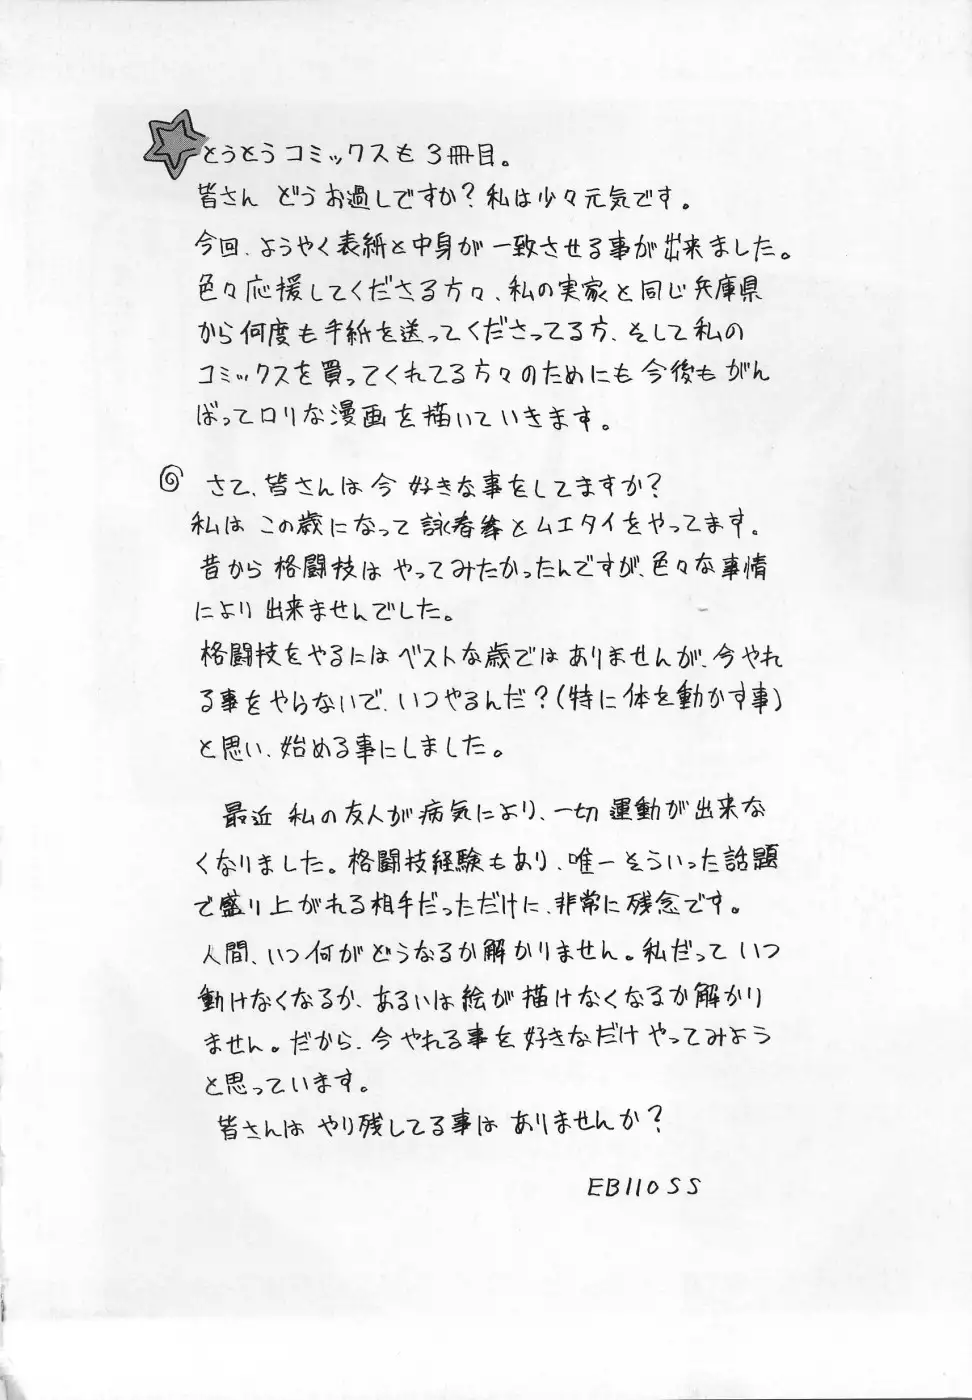 とうとうコミックスも3冊目。
皆さん どうお過しですか?私は少々元気です。
今回、ようやく表紙と中身が一致させる事が出来ました。
色々応援してくださる方々、私の実家と同じ兵庫県
から何度も手紙を送ってくださってる方、そして私の
コミックスを買ってくれてる方々のためにも今後もがん
ばってロリな漫画を描いていきます。
さて、皆さんは今好きな事をしてますか?
私はこの歳になって詠春拳とムエタイをやってます。
昔から格闘技はやってみたかったんですが、色々な事情
により出来ませんでした。
格闘技をやるにはベストな歳ではありませんが、今やれ
る事をやらないで、いつやるんだ?(特に体を動かす事)
と思い、始める事にしました。
最近私の友人が病気により、一切運動が出来な
くなりました。格闘技経験もあり、唯一そういった話題
で盛り上がれる相手だっただけに、非常に残念です。
人間、いつ何がどうなるか解かりません。私だっていつ
動けなくなるか、あるいは絵が描けなくなるか解かり
ません。だから、今やれる事を好きなだけやってみよう
と思っています。
皆さんはやり残してる事はありませんか?
EB110SS